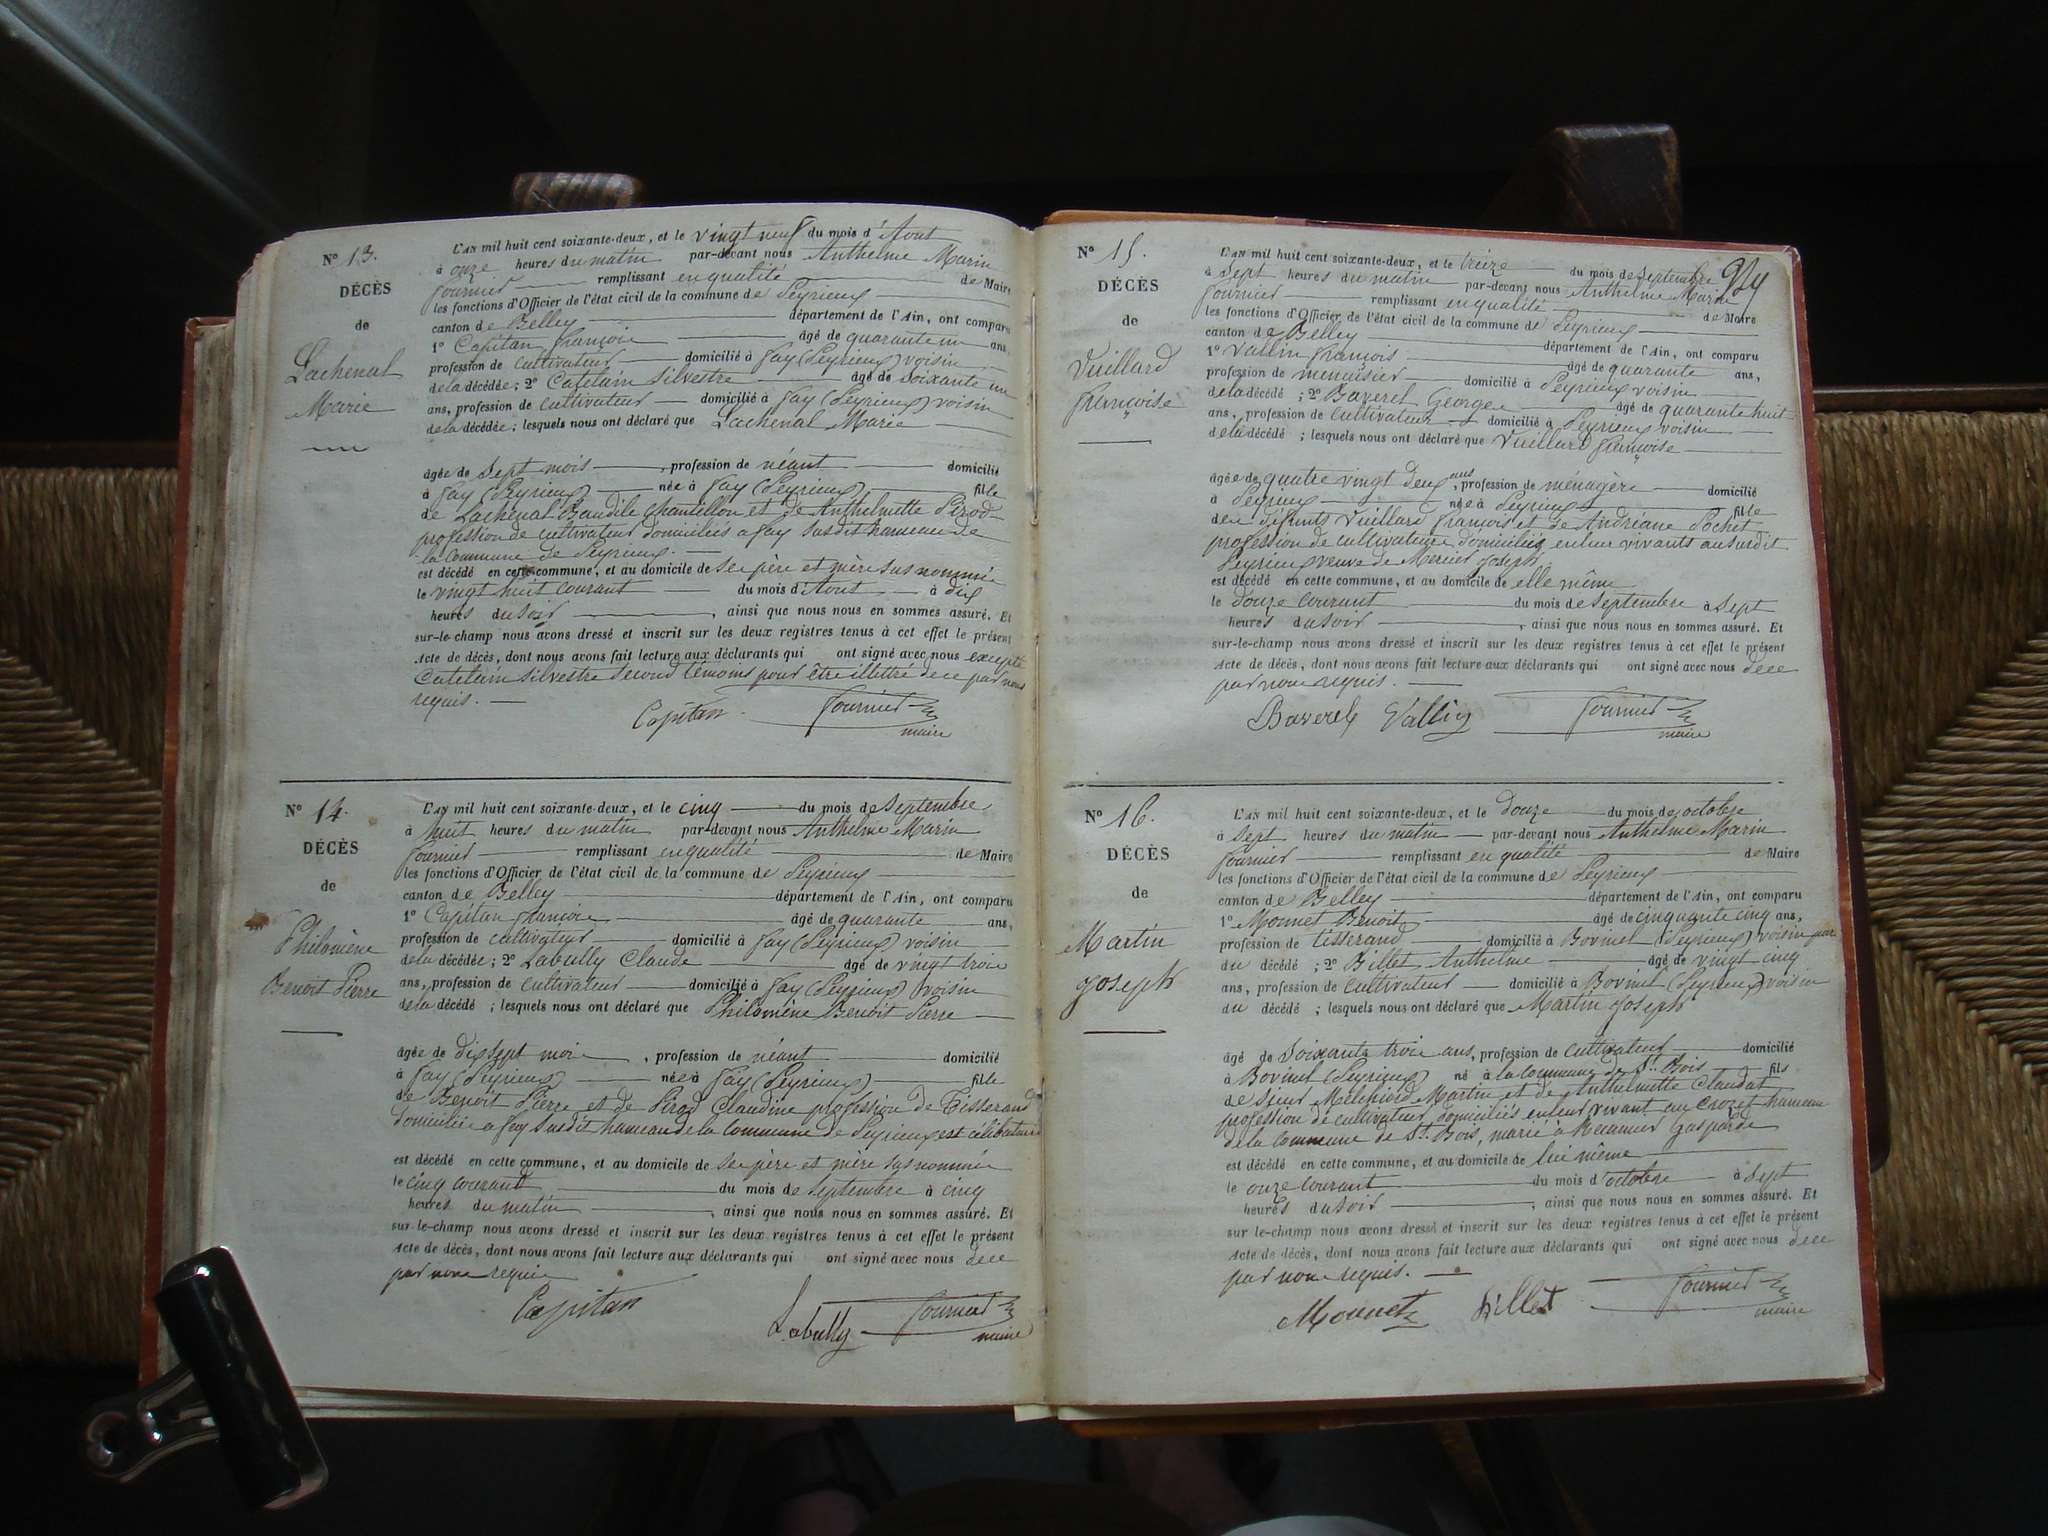 N° 13.
DÉCÈS
de
Lachenal
Marie
L'AN mil huit cent soixante-deux, et le vingt neuf du mois d'Aout
à onze heures du matin par-devant nous Anthelme Marin
Fournier remplissant en qualité de Maire
les fonctions d'Officier de l'état civil de la commune de Peyrieux
canton de Belley département de l'Ain, ont comparu
1° Capitan françois âgé de quarante un ans,
profession de cultivateur domicilié à Fay (Peyrieux) voisin
de la décédée; 2° Catelain Silvestre âgé de soixante un
ans, profession de cultivateur domicilié à Fay (Peyrieux) voisin
de la décédée; lesquels nous ont déclaré que Lachenal Marie
âgée de Sept mois, profession de néant domicilié
à Fay (Peyrieux) née à Fay (Peyrieux) fille
de Lachenal Baudile Chantillon et de Anthelmette Pirod
profession de cultivateur domiciliés a Fay susdit hameau de
la Commune de Peyrieux.
est décédé en cette commune, et au domicile de ses père et mère sus nommés
le vingt huit courant du mois d'Aout à dix
heures du Soir, ainsi que nous nous en sommes assuré. Et
sur-le-champ nous avons dressé et inscrit sur les deux registres tenus à cet effet le présent
Acte de décès, dont nous avons fait lecture aux déclarants qui ont signé avec nous excepté
Catelain Silvestre Second témoins pour être illettré de ce par nous
requis.
Capitan Fournier
maire
N° 14.
DÉCÈS
de
Philomène
Benoit Pierre
L'AN mil huit cent soixante-deux, et le cinq du mois de Septembre
à huit heures du matin par-devant nous Anthelme Marin
Fournier remplissant en qualité de Maire
les fonctions d'Officier de l'état civil de la commune de Peyrieux
canton de Belley département de l'Ain, ont comparu
1° Capitan françois âgé de quarante ans,
profession de cultivateur domicilié à Fay (Peyrieux) voisin
de la décédée; 2° Labully Claude âgé de vingt trois
ans, profession de cultivateur domicilié à Fay (Peyrieux) voisin
de la décédé; lesquels nous ont déclaré que Philomène Benoit Pierre
âgée de dix sept mois, profession de néant domicilié
à Fay (Peyrieux) née à Fay (Peyrieux) fille
de Benoit Pierre et de Pirod Claudine profession de Tisserand
domiciliés a Fay susdit hameau de la Commune de Peyrieux est célibataire
est décédé en cette commune, et au domicile de ses père et mère sus nommés
le cinq courant du mois de Septembre à cinq
heures du matin, ainsi que nous nous en sommes assuré. Et
sur-le-champ nous avons dressé et inscrit sur les deux registres tenus à cet effet le présent
Acte de décès, dont nous avons fait lecture aux déclarants qui ont signé avec nous de ce
par nous requis
Capitan Labully Fournier
maire
N° 15.
DÉCÈS
de
Vuillard
françoise
L'AN mil huit cent soixante-deux, et le treize du mois de Septembre
à Sept heures du matin par-devant nous Anthelme Marin
Fournier remplissant en qualité de Maire
les fonctions d'Officier de l'état civil de la commune de Peyrieux
canton de Belley département de l'Ain, ont comparu
1° Vallin françois âgé de quarante ans,
profession de menuisier domicilié à Peyrieux voisin
de la décédé; 2° Baverel George âgé de quarante huit
ans, profession de cultivateur domicilié à Peyrieux voisin
de la décédé; lesquels nous ont déclaré que Vuillard françoise
âgée de quatre vingt deux ans, profession de ménagère domicilié
à Peyrieux née à Peyrieux fille
des défunts Vuillard françois et de Andréane Pochet
profession de cultivateurs domiciliés en leur vivants au susdit
Peyrieux veuve de Mercier Joseph
est décédé en cette commune, et au domicile de elle même
le douze courant du mois de Septembre à Sept
heures du Soir, ainsi que nous nous en sommes assuré. Et
sur-le-champ nous avons dressé et inscrit sur les deux registres tenus à cet effet le présent
Acte de décès, dont nous avons fait lecture aux déclarants qui ont signé avec nous de ce
par nous requis.
Baverel Vallin Fournier
maire
N° 16.
DÉCÈS
de
Martin
Joseph
L'AN mil huit cent soixante-deux, et le douze du mois de octobre
à Sept heures du matin par-devant nous Anthelme Marin
Fournier remplissant en qualité de Maire
les fonctions d'Officier de l'état civil de la commune de Peyrieux
canton de Belley département de l'Ain, ont comparu
1° Monnet Benoit âgé de cinquante cinq ans,
profession de tisserand domicilié à Bovinel (Peyrieux) voisin
du décédé; 2° Billet Anthelme âgé de vingt cinq
ans, profession de cultivateur domicilié à Bovinel (Peyrieux) voisin
du décédé; lesquels nous ont déclaré que Martin Joseph
âgé de Soixante trois ans, profession de cultivateur domicilié
à Bovinel (Peyrieux) né à la commune de St. Bois fils
de Sieur Melchiord Martin et de Anthelmette Claudat
profession de cultivateur domiciliés en leur vivant au Crozet hameau
de la Commune de St. Bois, marié à Gasparde
est décédé en cette commune, et au domicile de lui même
le onze courant du mois d'octobre à Sept
heures du Soir, ainsi que nous nous en sommes assuré. Et
sur-le-champ nous avons dressé et inscrit sur les deux registres tenus à cet effet le présent
Acte de décès, dont nous avons fait lecture aux déclarants qui ont signé avec nous de ce
par nous requis.
Monnet Billet Fournier
maire